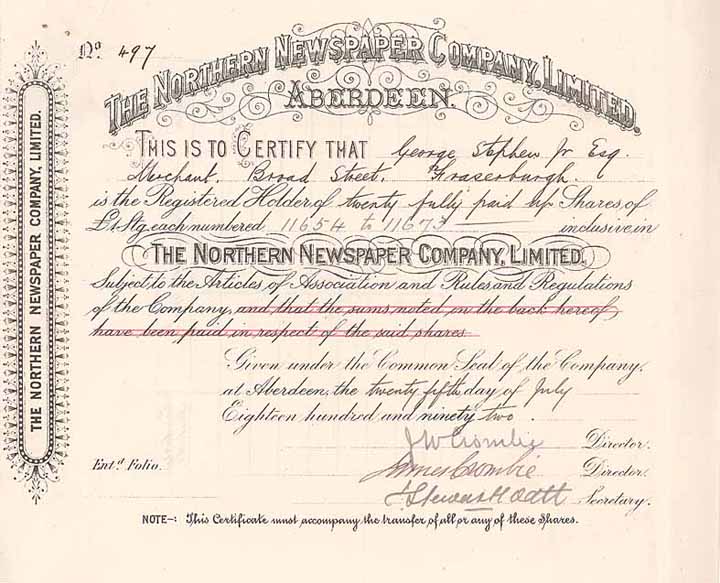 Nº 497
THE NORTHERN NEWSPAPER COMPANY, LIMITED.
ABERDEEN.
THIS IS TO CERTIFY THAT George Stephen Jr Esq.
Merchant, Broad Street, Fraserburgh.
is the Registered Holder of twenty fully paid up Shares, of
£1 Stg. each numbered 11654 to 11673 inclusive in
THE NORTHERN NEWSPAPER COMPANY, LIMITED.
Subject to the Articles of Association and Rules and Regulations
of the Company, and that the sums noted in the back hereof
have been paid in respect of the said shares.
Given under the Common Seal of the Company,
at Aberdeen, the twenty fifth day of July
Eighteen hundred and ninety two.
J W Crombie Director.
Entd. Folio. James Crombie Director.
Secretary.
NOTE-: This Certificate must accompany the transfer of all or any of these Shares.
THE NORTHERN NEWSPAPER COMPANY, LIMITED.